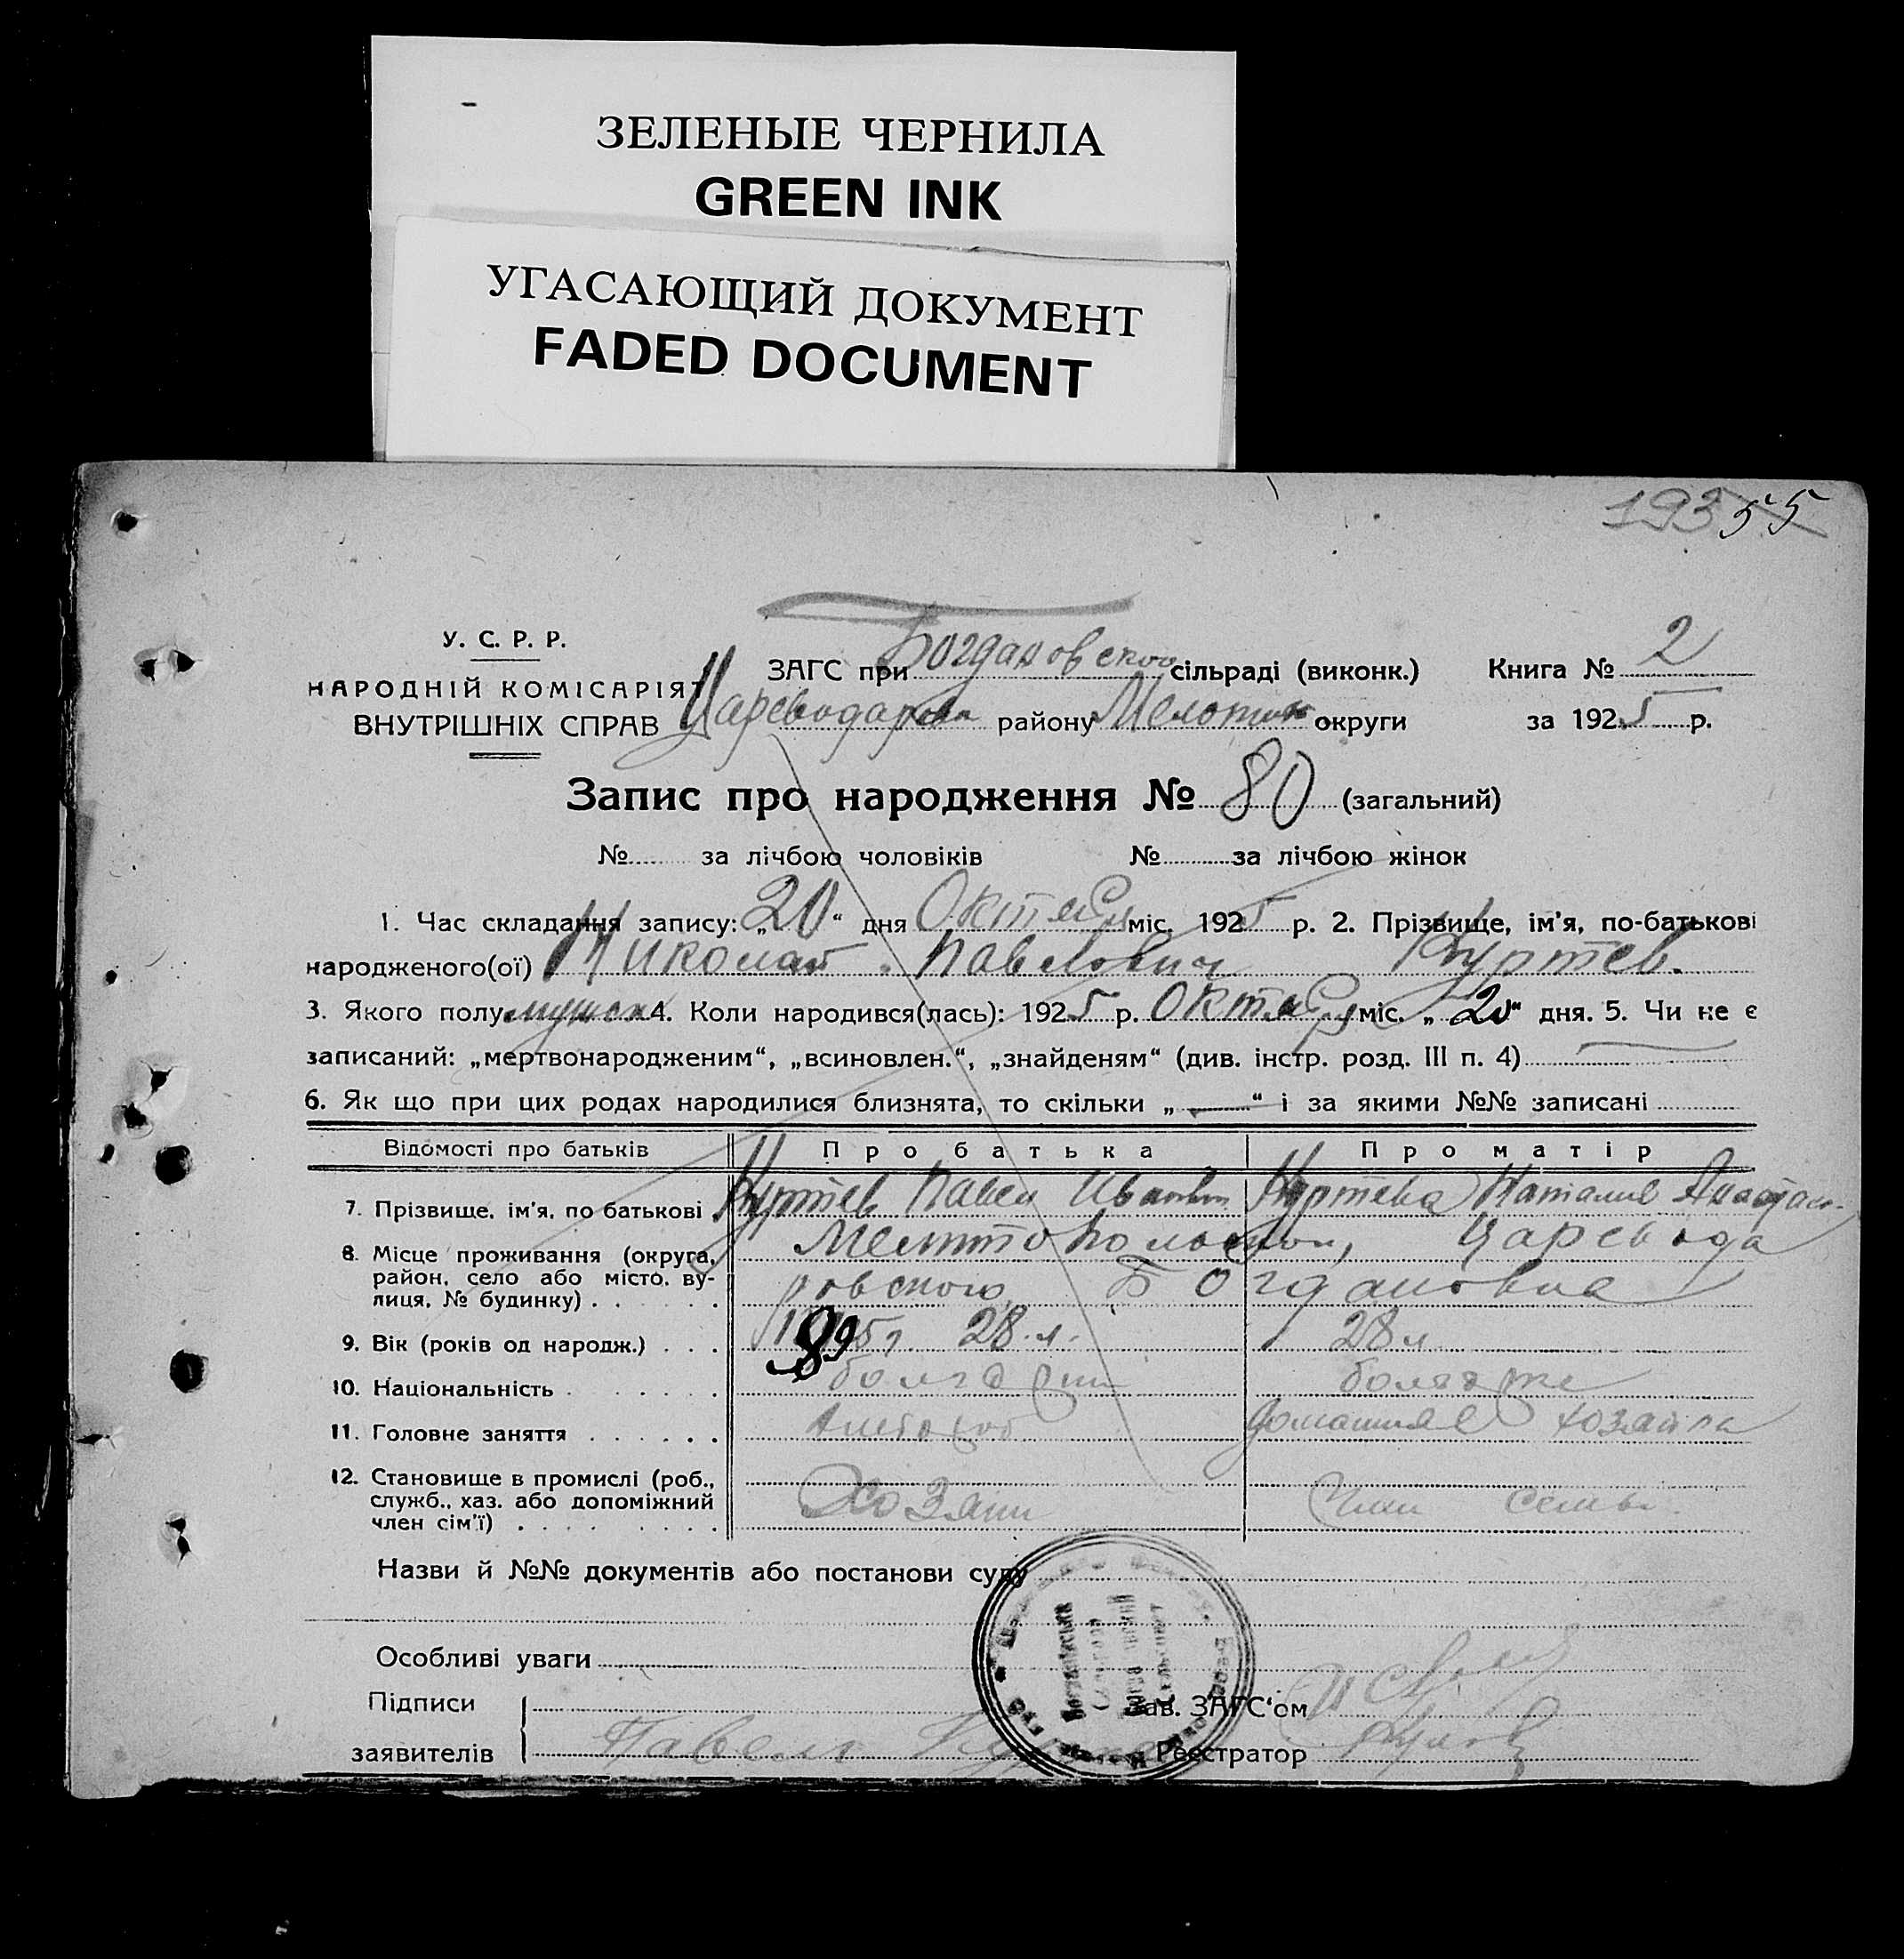 ЗЕЛЕНЫЕ ЧЕРНИЛА
GREEN INK
УГАСАЮЩИЙ ДОКУМЕНТ
FADED DOCUMENT
193 55
У. С. Р. Р.
НАРОДНІЙ КОМІСАРІЯТ
ВНУТРІШНІХ СПРАВ
ЗАГС при Богдановской сільраді (виконк.) Книга № 2
району округи за 1925 р.
Запис про народження № 80 (загальний)
№ за лічбою чоловіків № за лічбою жінок
1. Час складання запису: „20“ дня Октября міс. 1925 р. 2. Прізвище, ім'я, по-батькові
народженого(ої) Николай Павлович Куртев.
3. Якого полу мужск 4. Коли народився(лась): 1925 р. Октября міс. „20“ дня. 5. Чи не є
записаний: „мертвонародженим“, „всиновлен.“, „знайденям“ (див. інстр. розд. III п. 4)
6. Як що при цих родах народилися близнята, то скільки „ “ і за якими №№ записані
Відомості про батьків Про батька Про матір
7. Прізвище, ім'я, по батькові Куртев Павел Иванович Куртева Наталия
8. Місце проживання (округа,
район, село або місто, ву-
лиця, № будинку) . . . . . .
Мелитопольской, Царевода
ровского Богдановка
9. Вік (років од народж.) . . . 1895 г. 28 л. 28 л
10. Національність . . . . . . . болгарин болгарке
11. Головне заняття . . . . . . домашняе хозайка
12. Становище в промислі (роб.,
служб., хаз. або допоміжний
член сім'ї) . . . . . . . . .
Хозяин Член семьи
Назви й №№ документів або постанови суду
Особливі уваги
Підписи Зав. ЗАГС'ом
заявителів Павел Реєстратор